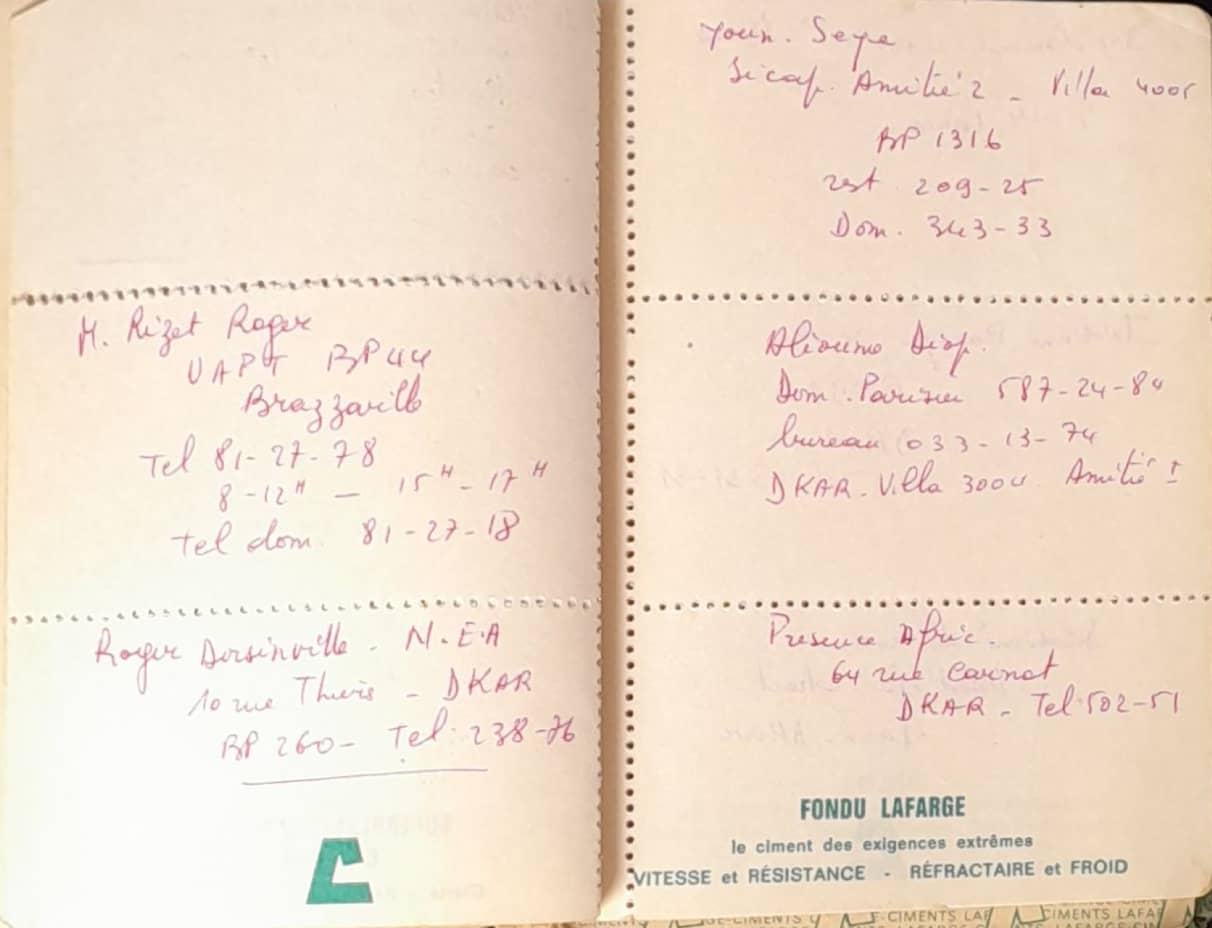 M. Rizet Roger
UAPT BP 44
Brazzaville
Tel 81-27-78
8-12H — 15H-17H
Tel dom. 81-27-18
Roger Dorsinville - N.E.A
10 rue Thiers - DKAR
BP 260 - Tel: 238-76
Youn. Seye
Sicap. Amitié 2 - Villa 4005
BP 1316
rest. 209-25
Dom. 343-33
Alioune Diop.
Dom. Parisien 587-24-84
bureau 033-13-74
DKAR - Villa 3004 Amitié I
Presence Afric.
64 rue Carnot
DKAR - Tel: 502-51
FONDU LAFARGE
le ciment des exigences extrêmes
VITESSE et RÉSISTANCE - RÉFRACTAIRE et FROID
CIMENTS
CIMENTS LAF
CIMENTS LAFA